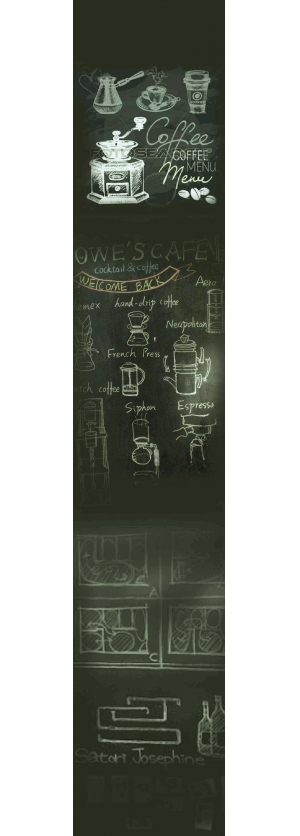 Coffee
COFFEE
MENU
Menu
OWE'S CAFE
cocktail & coffee
WELCOME BACK
Aero
emex
hand-drip coffee
Neapolitan
French Press
tch coffee
Siphon
Espresso
A
A
C
Satori Josephine